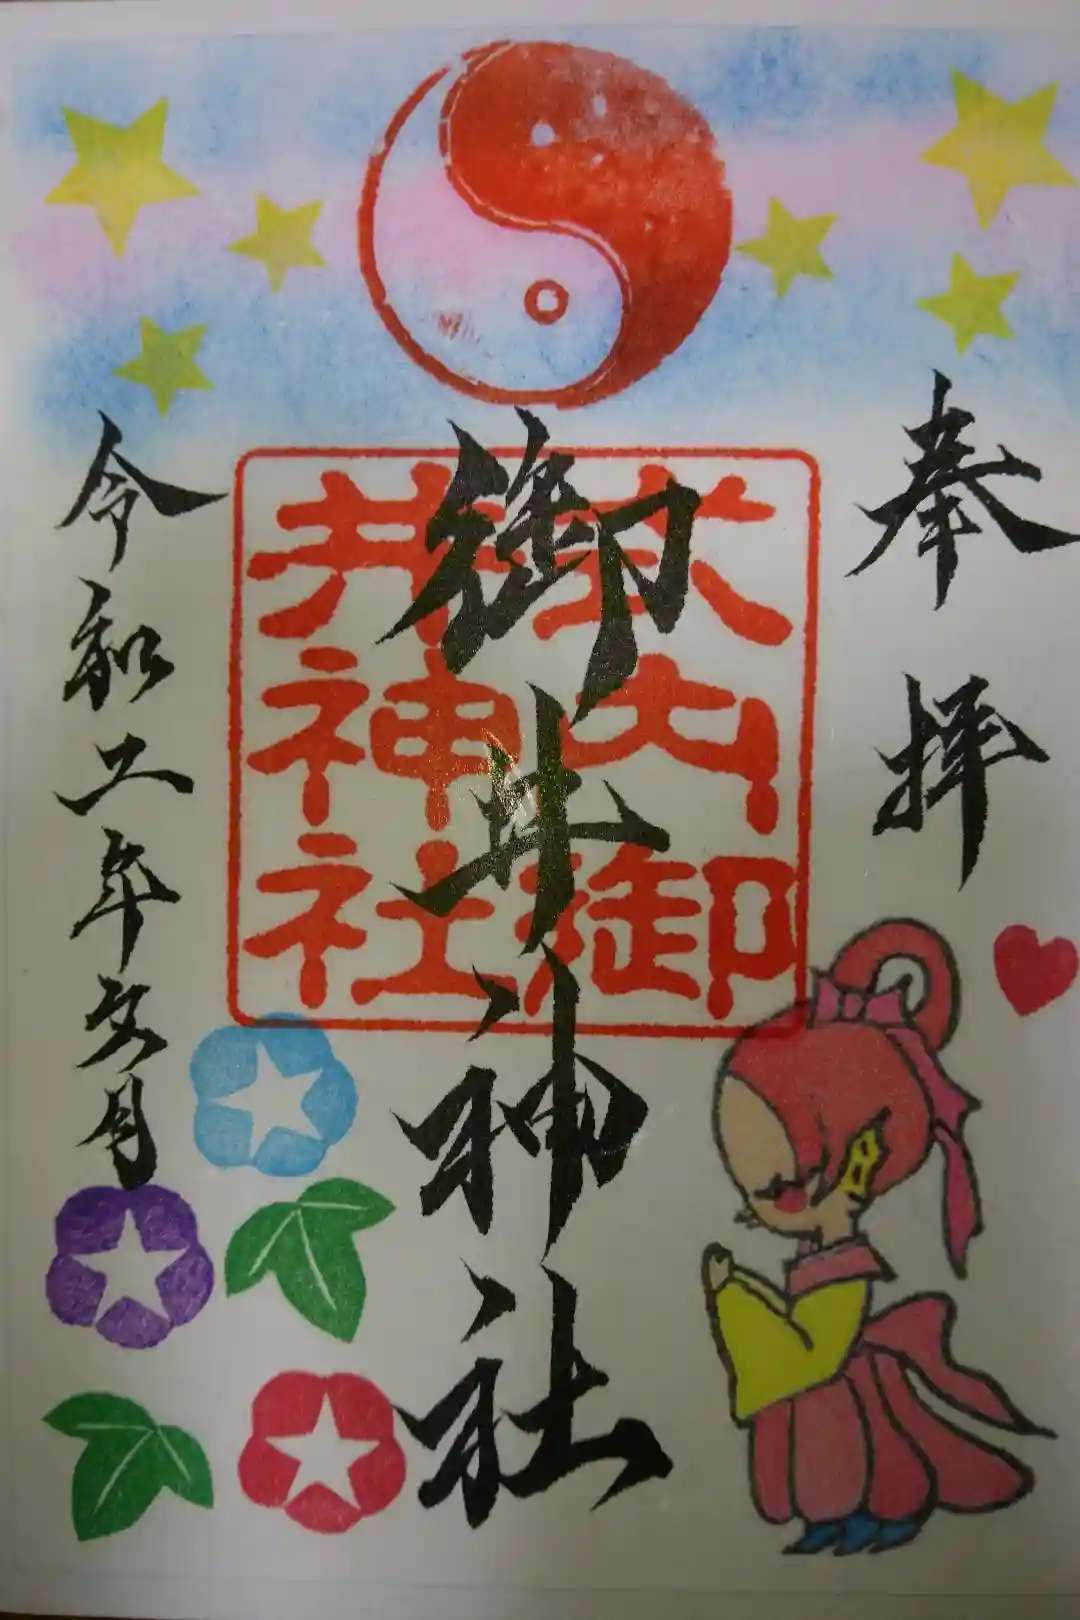 奉拝
御井神社
木内御
井神社
令和二年文月